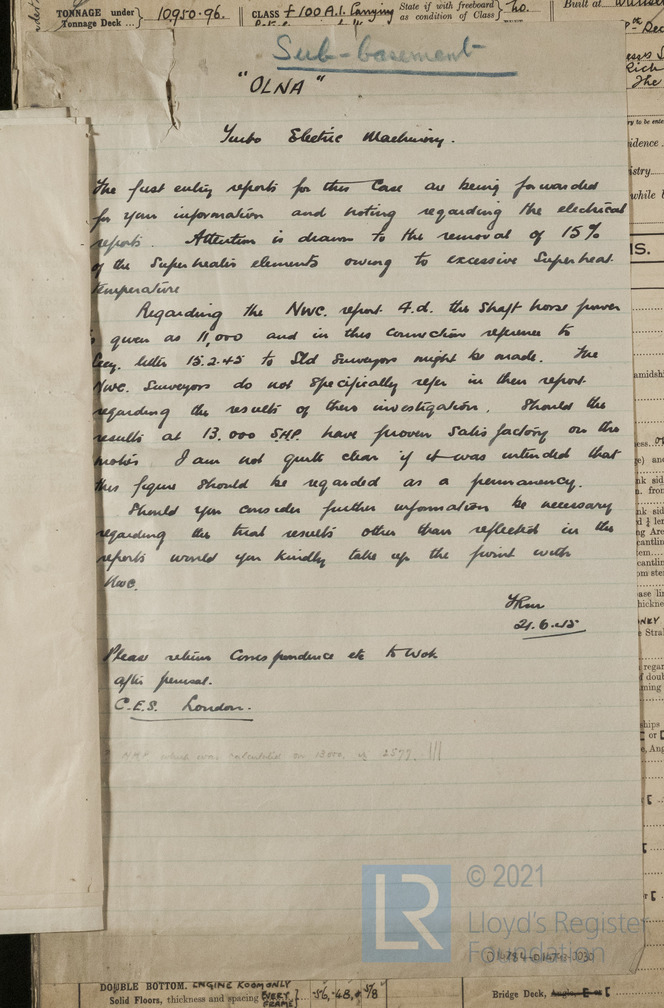 TONNAGE under
Tonnage Deck
10950.96.
CLASS
State if with freeboard
as condition of Class
no.
Built at
Sub-basement
"OLNA"
Turbo Electric Machinery.
The first entry reports for this Case are being forwarded
for your information and noting regarding the electrical
reports. Attention is drawn to the removal of 15%
of the Superheater elements owing to excessive Superheat
temperature
Regarding the Nwc. report 4.d. the Shaft horse power
is given as 11,000 and in this connection reference to
letter 15.2.45 to Sld Surveyors might be made. The
Nwc. Surveyors do not specifically refer in their report
regarding the results of their investigation. Should the
results at 13,000 S.H.P. have proven satisfactory on the
I am not quite clear if it was intended that
this figure should be regarded as a permanency.
Should you consider further information be necessary
regarding the trial results other than reflected in the
reports would you kindly take up the point with
Nwc.
21.6.45
Please return Correspondence etc to Wok
after perusal.
C.E.S. London.
© 2021
LR
Lloyd's Register
Foundation
DOUBLE BOTTOM. ENGINE ROOM ONLY
Solid Floors, thickness and spacing EVERY FRAME
Bridge Deck,